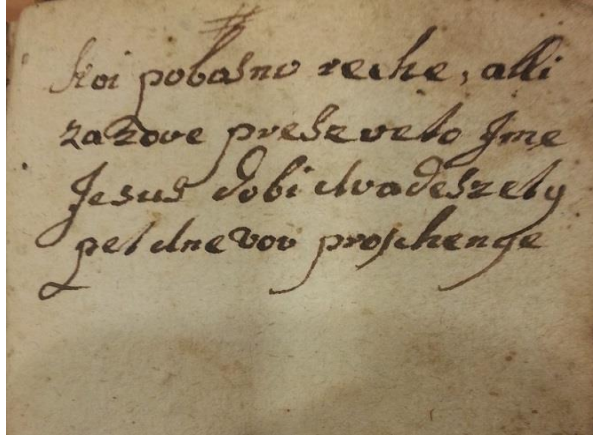 #
koi pobosno reche, alli
zazove preszveto Jme
Jesus dobi dvadeszety
pet dnevov proschenge